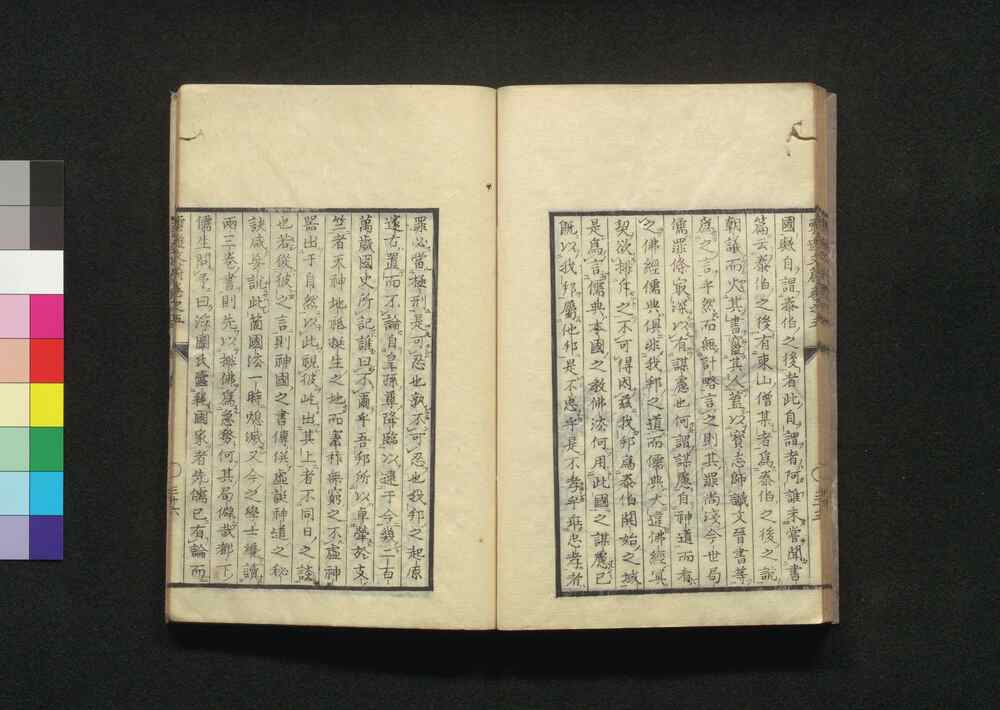 國歟自謂泰伯之後者此自謂者阿誰未嘗聞書
篇云泰伯之後有東山僧某者爲泰伯之後之說
朝議而火其書竄其人蓋以寶志師讖文晉書等
爲之言乎然而無計略言之則其罪尚淺今世局
儒罪條最深以有謀慮也何謂謀慮自神道而看
之佛經儒典俱非我邦之道而儒典大違佛經冥
契欲排斥之不可得因茲我邦爲泰伯開始之域
是爲言儒典本國之教佛法何用此國之謀慮已
既以我邦屬他邦是不忠乎是不孝乎乖忠孝者
三十五
罪必當極刑是可忍也孰不可忍也我邦之起原
遠右置而不論自皇孫尊降臨以還于今幾二百
萬歲國史所記誰曰不爾乎吾邦所以卓犖於支
竺者天神地祇挺生之地而肅祚無窮之不虛神
器出于自然以此視彼此出其上者不同日之談
也若從彼之言則神國之書傳俟虛誕神道之秘
訣咸妄訛此箇國法一時熄滅又今之學士纔讀
兩三卷書則先以排佛爲急務何其局僻哉都下
儒生問予曰浮圖氏蠧國家者先儒已有論而
三十六